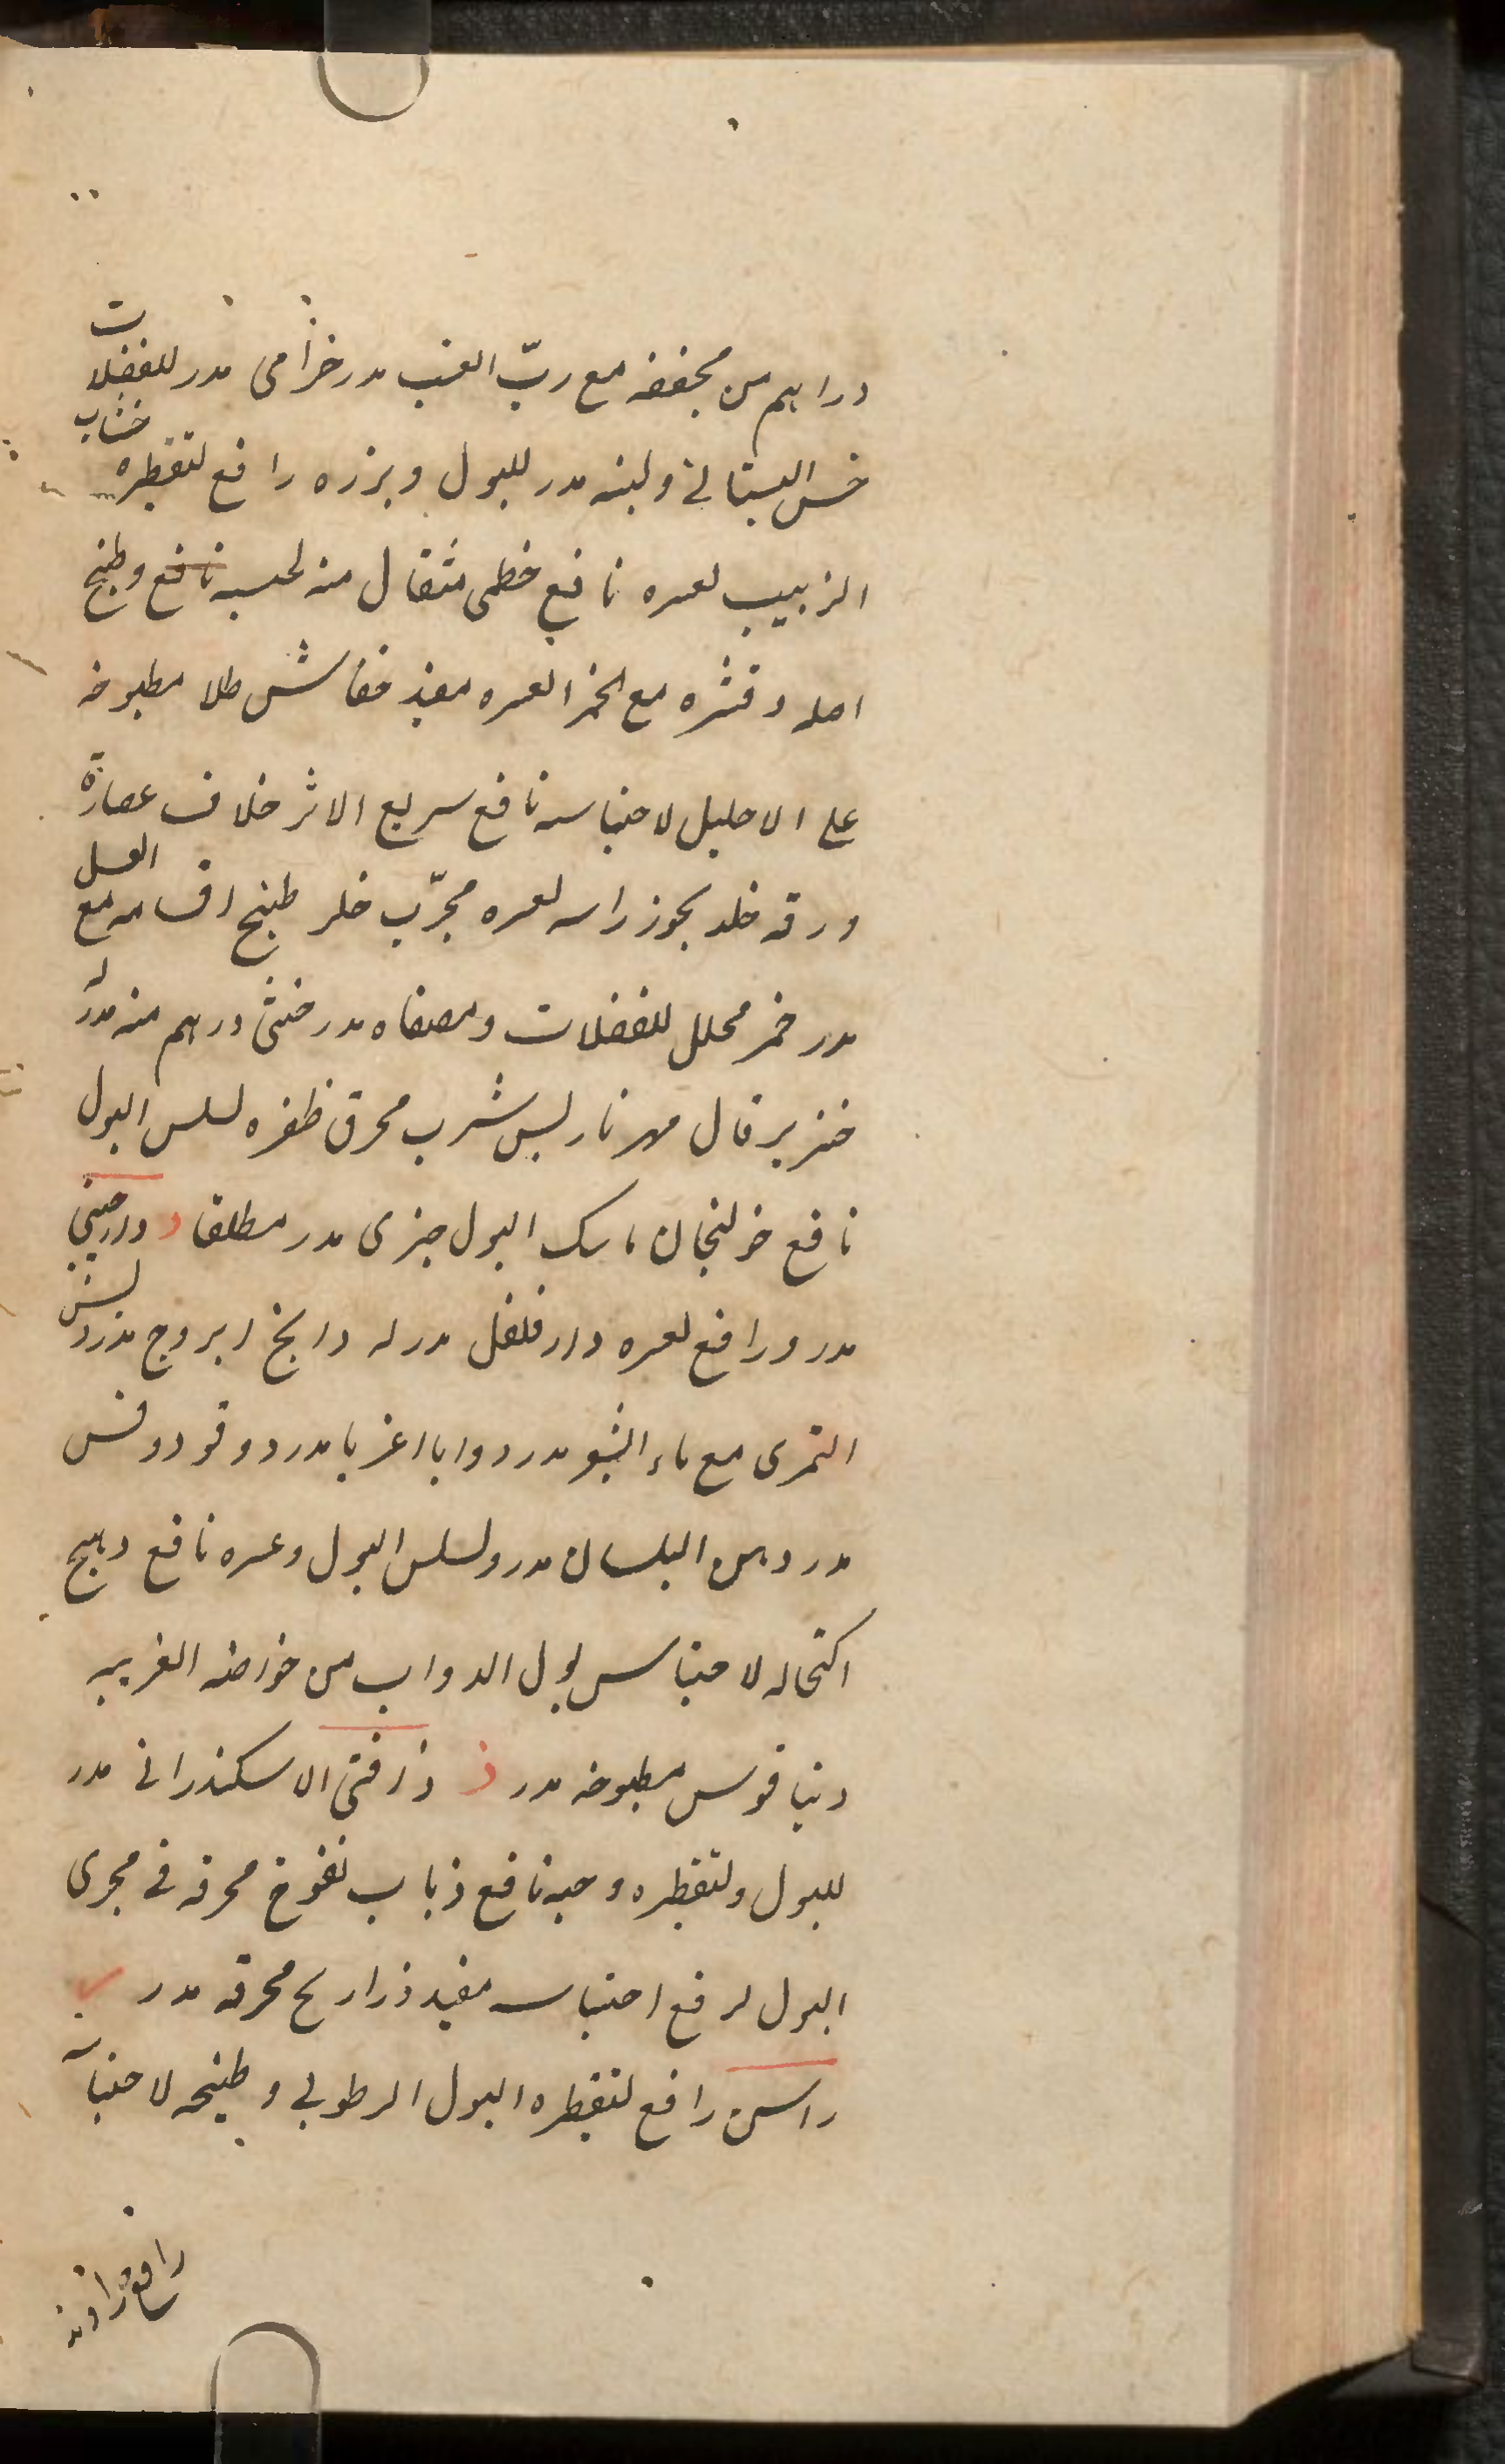 دراهم من مجففه مع ربّ العنب مدر خزامى مدر للفضلات
خس البستانى ولبنه مدر للبول وبزره رافع لتقطيره خشاب
الزبيب لعسره نافع خطمى مثقال منه لحبسه نافع وطبخ
اصله وقشره مع الخمر لعسره مفيد خفاش طلا مطبوخه
على الاحليل لاحتباسه نافع سريع الاثر خلاف عصارة
ورقه خلد بخور راسه لعسره مجرّب خلر طبيخ اقسامه مع العسل
مدر خمر محلل للفضلات ومصفاه مدر خنثى درهم منه مدر له
خنزير قال مهرنارليس شرب محرق ظفره لسلس البول
نافع خولنجان ماسك البول خيرى مدر مطلقا د دارصينى
مدر ورافع لعسره دارفلفل مدر له دابخ ابروج مدر دبس
التمرى مع ماء الشبو مدر دوابا اغربا مدر دوقو دوقس
مدر دهن البلسان مدر ولسلس البول وعسره نافع دهنج
اكتحاله لاحتباس بول الدواب من خواصه الغريبه
دنيا قوس مطبوخه مدر ذ ذافنى الاسكندرانى مدر
للبول ولتقطيره وحبه نافع ذباب نفوخ محرقه فى مجرى
البول لرفع احتباسه مفيد ذراريح محرقه مدر ر
راسن رافع لتقطيره البول الرطوبى وطبيخه لاحتباسه
رافع راوند